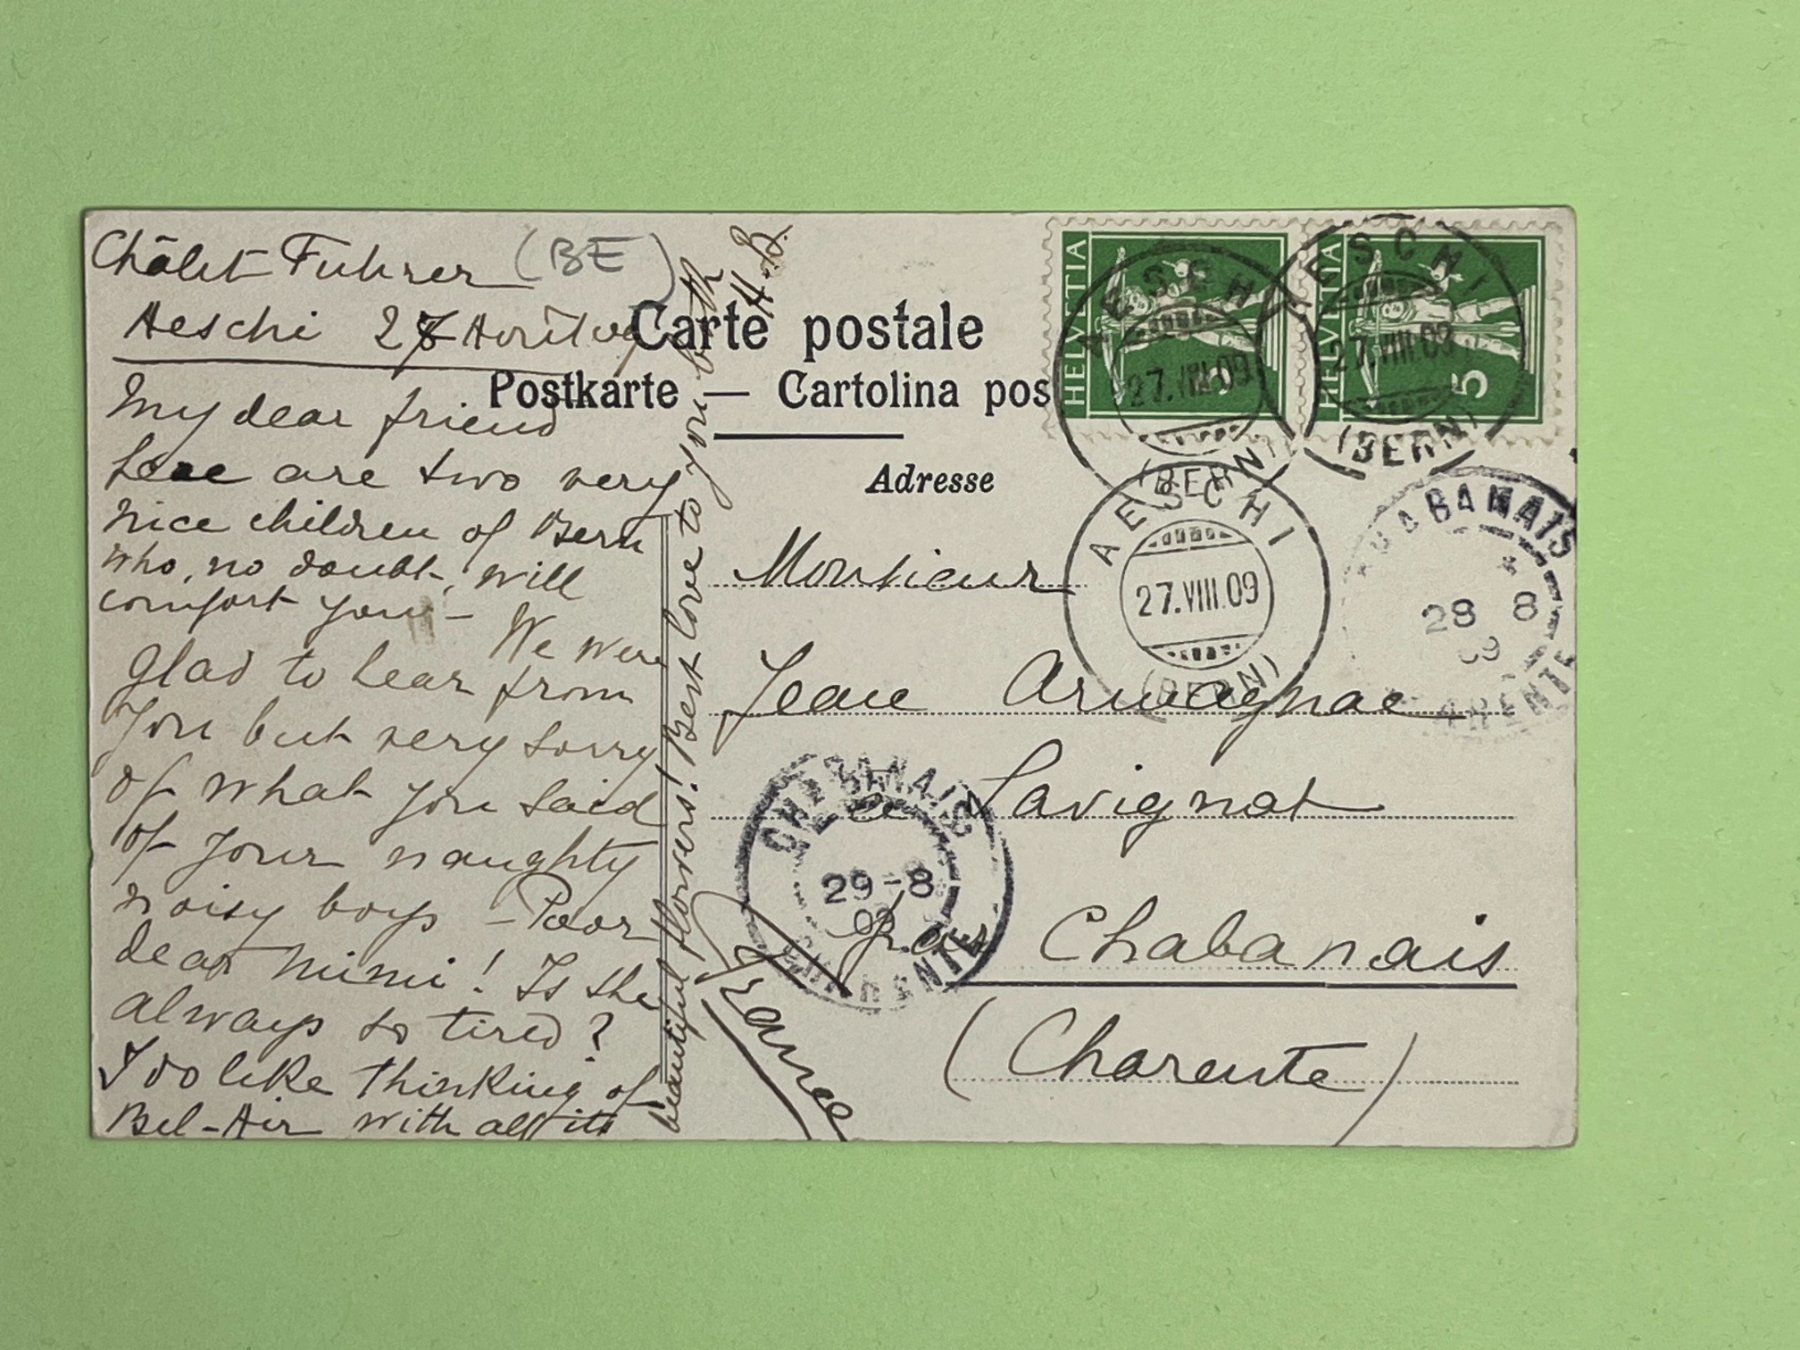 Châlet Fuhrer (BE)
Aeschi 27 Août 09
My dear friend
here are two very
nice children of Bern
who, no doubt, will
comfort you —
We were
glad to hear from
you but very sorry
of what you said
of your naughty
noisy boys — Poor
dear Mimi! Is she
always so tired?
I do like thinking of
Bel-Air with all its
beautiful flowers! Best love to you both
Carte postale
Postkarte — Cartolina pos
Adresse
Monsieur
Jean Armagnac
à Lavignat
par Chabanais
(Charente)
France
HELVETIA
5
HELVETIA
5
AESCHI
27.VIII.09
(BERN)
AESCHI
27.VIII.09
(BERN)
AESCHI
27.VIII.09
(BERN)
CHABANAIS
28 8
09
CHARENTE
CHABANAIS
29-8
09
CHARENTE